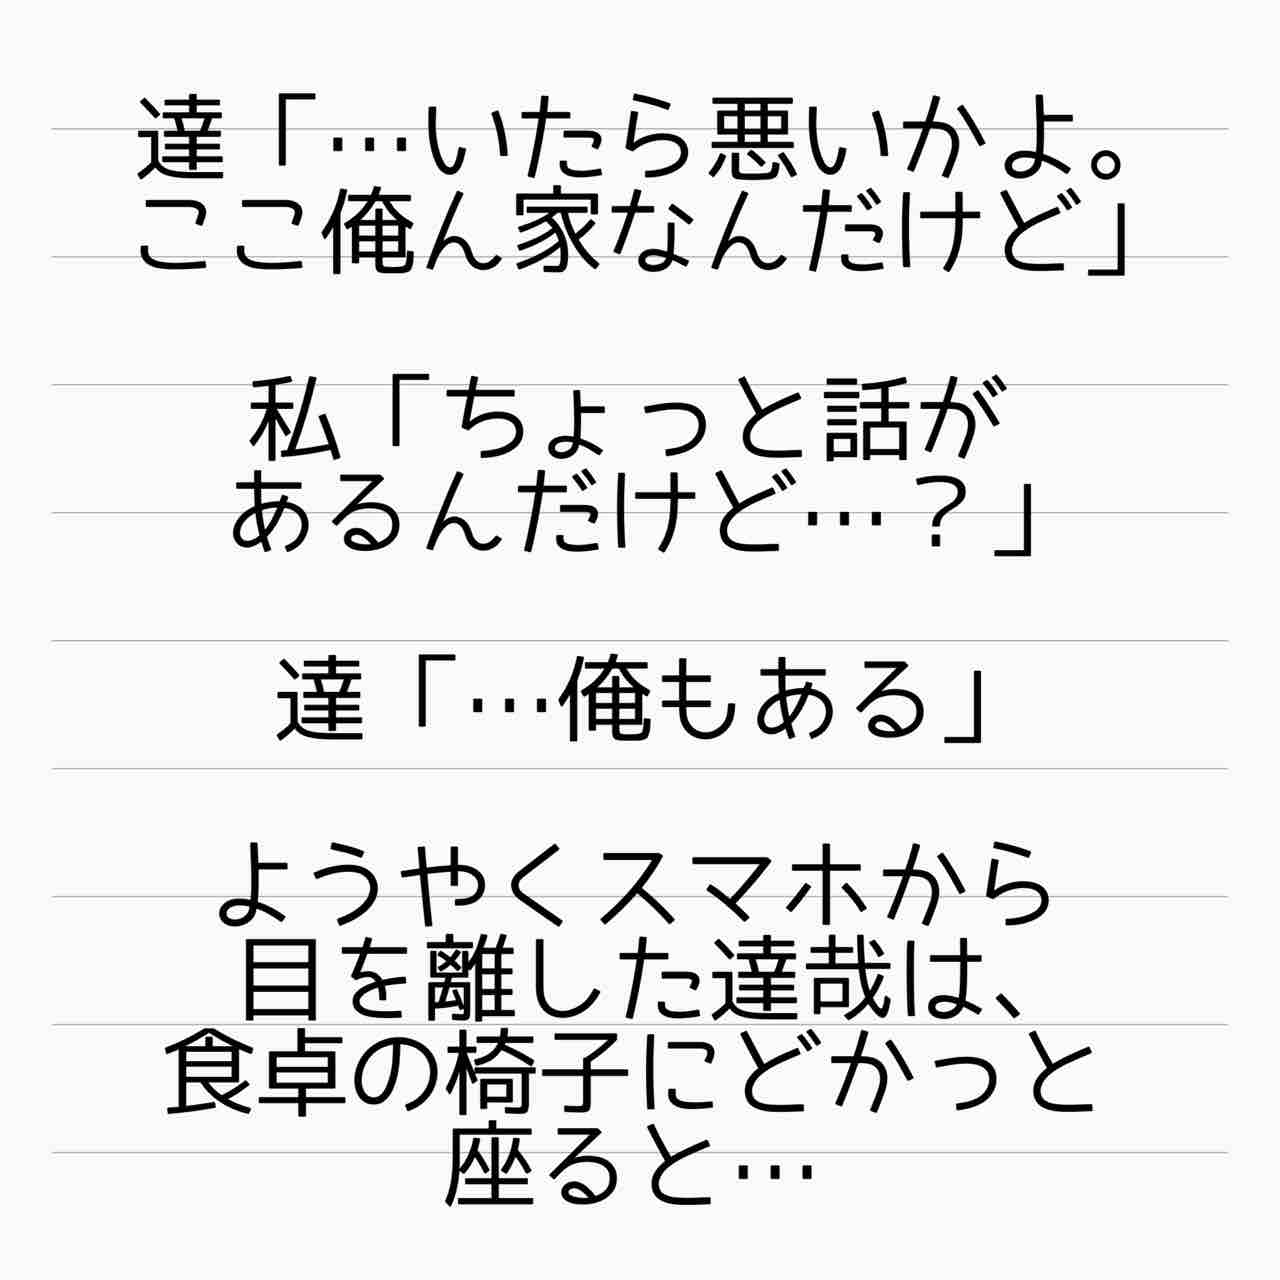 達「…いたら悪いかよ。
ここ俺ん家なんだけど」
私「ちょっと話が
あるんだけど…？」
達「…俺もある」
ようやくスマホから
目を離した達哉は、
食卓の椅子にどかっと
座ると…